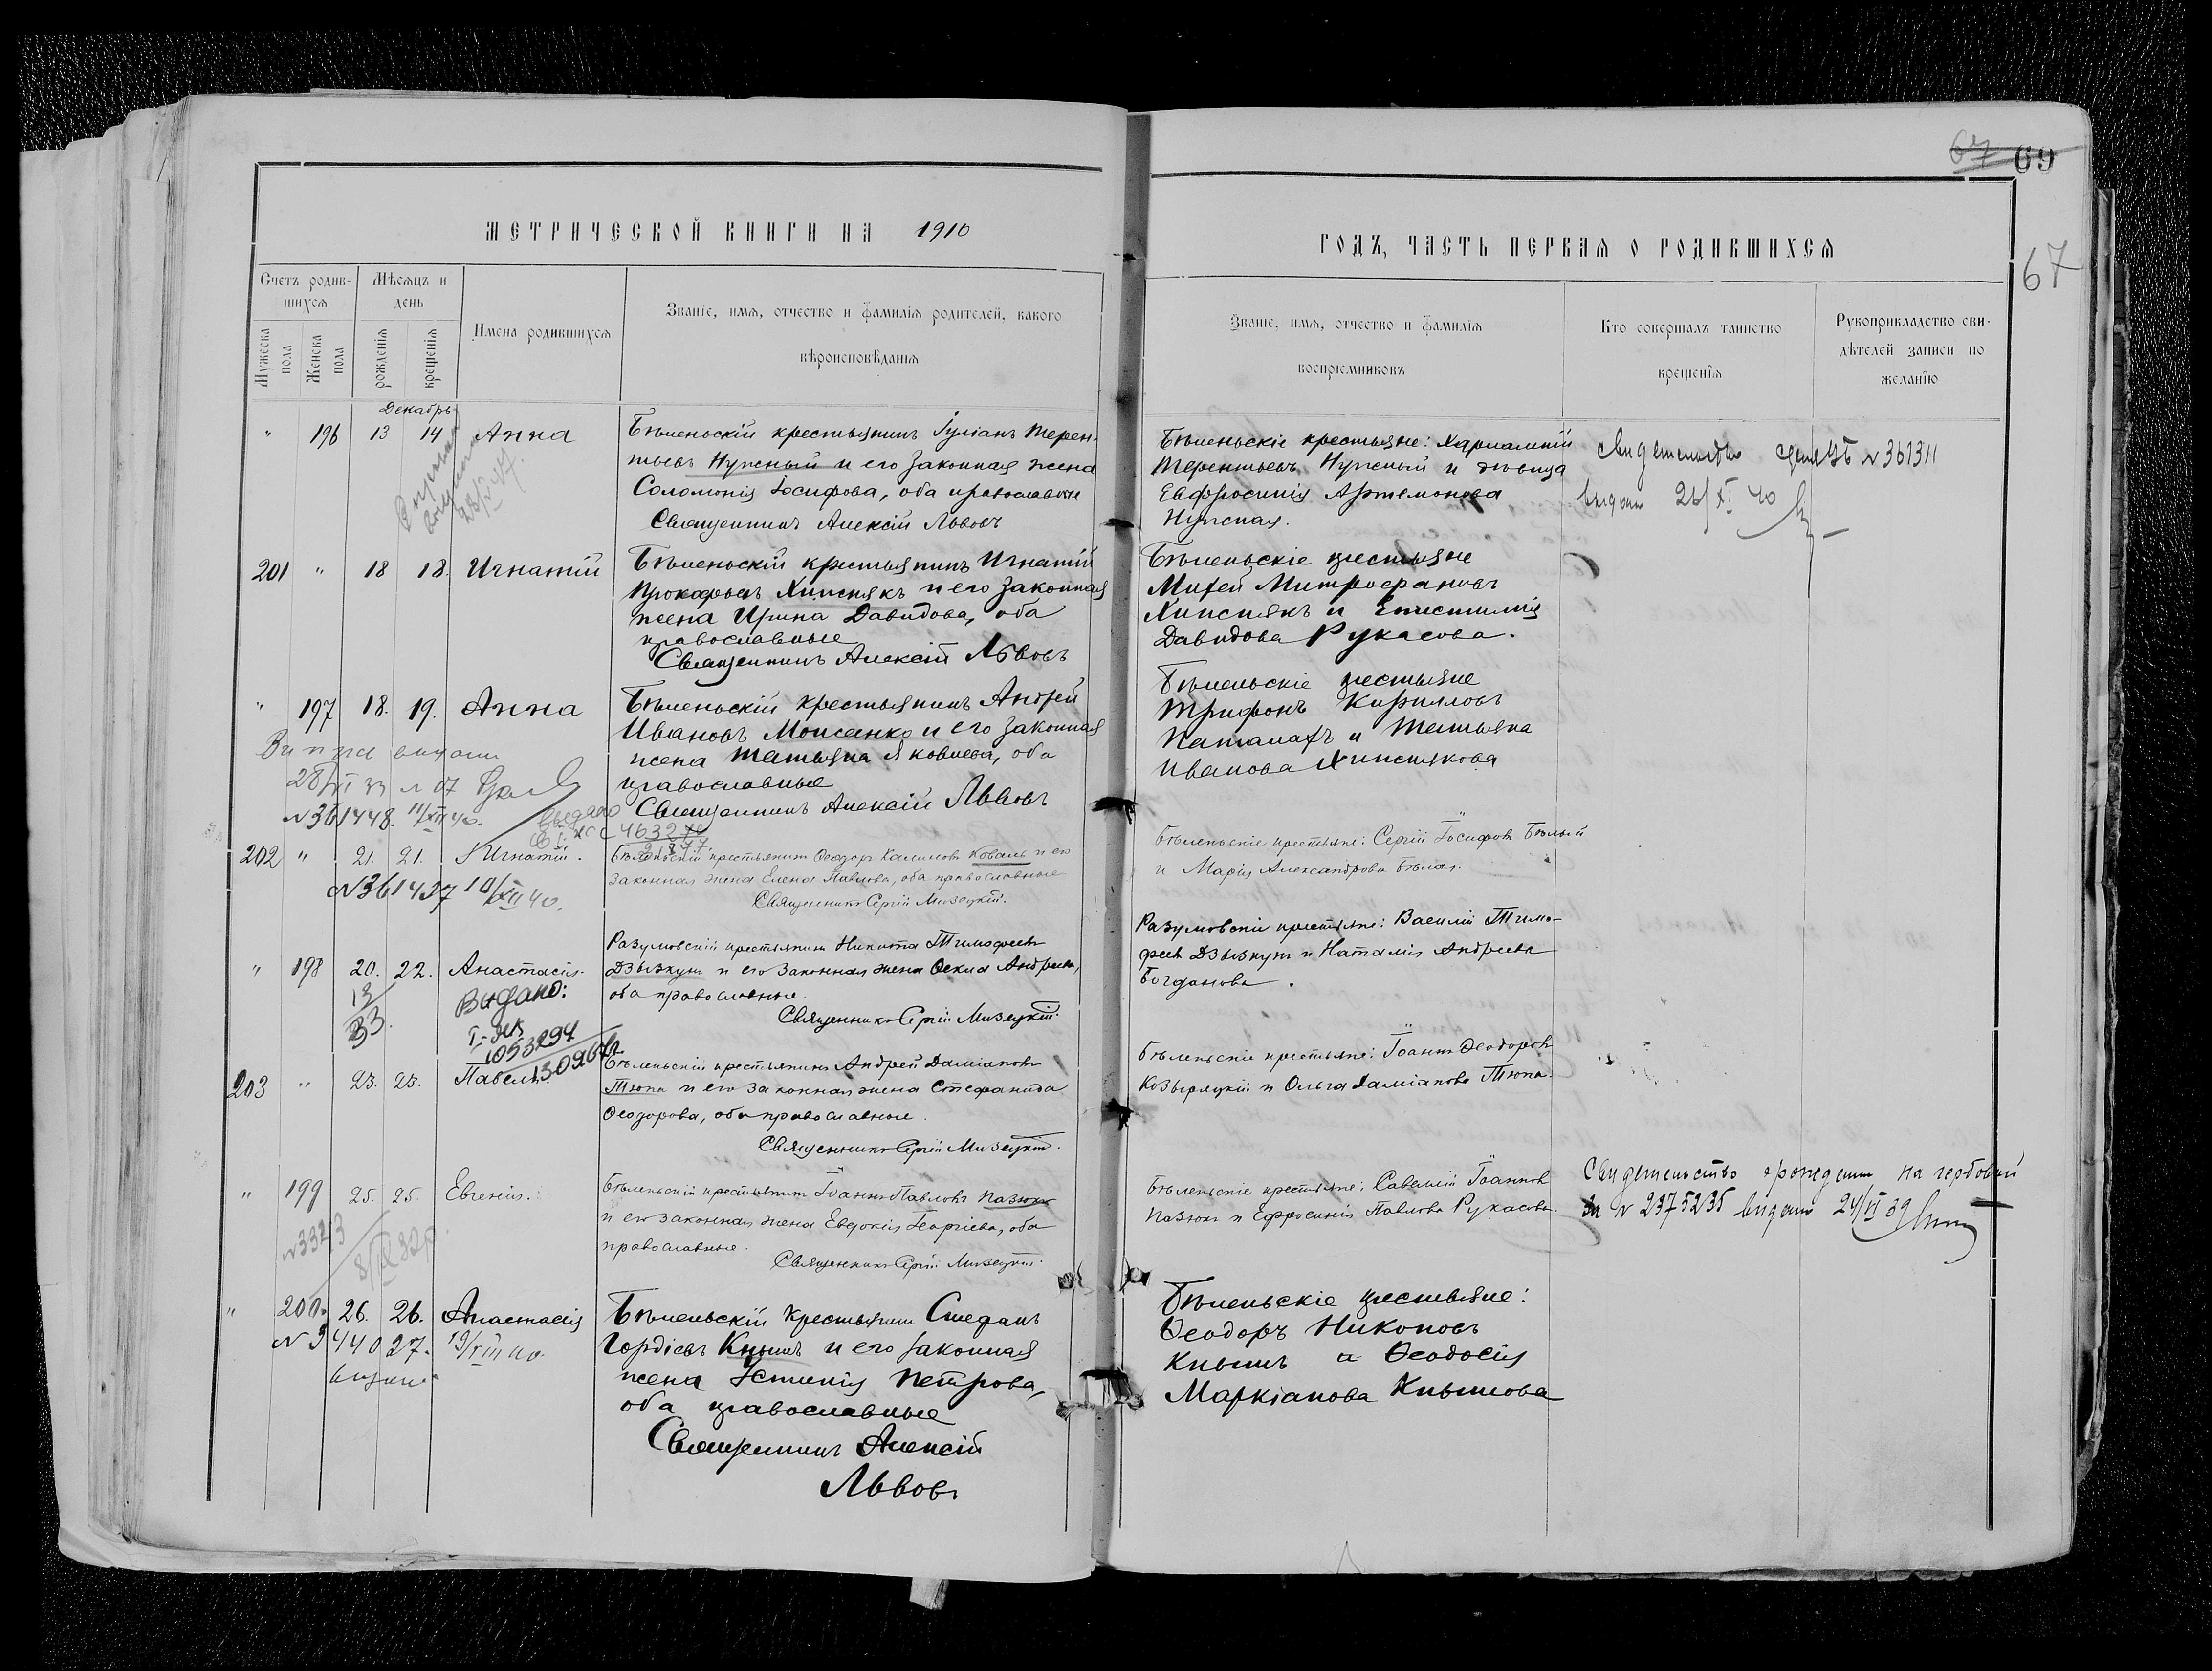 67 69
МЕТРИЧЕСКОЙ КНИГИ НА 1910
ГОДЪ, ЧАСТЬ ПЕРВАЯ О РОДИВШИХСЯ
67
Счетъ родив-
шихся
Мѣсяцъ и
день
Имена родившихся
Званіе, имя, отчество и фамилія родителей, какого
вѣроисповѣданія
Мужеска пола
Женска пола
рожденія
крещенія
Званіе, имя, отчество и фамилія
воспріемниковъ
Кто совершалъ таинство
крещенія
Рукоприкладство сви-
дѣтелей записи по
желанію
Декабрь
" 196 13 14 Анна
Бѣленьскій крестьянинъ Іуліанъ Терен-
тьевъ Нужный и его законная жена
Соломонія Іосифова, оба православные
Священникъ Алексій Львовъ
Бѣленьскіе крестьяне: Харлампій
Терентьевъ Нужный и дѣвица
Евфросинія Артемонова
Нужная.
№ 361311
выдано 26/XI 40
201 " 18 18. Игнатій
Бѣленьскій крестьянинъ Игнатій
Прокофьевъ Хижнякъ и его законная
жена Ирина Давидова, оба
православные
Священникъ Алексій Львовъ
Бѣленьскіе крестьяне
Михей Митрофановъ
Хижнякъ и Епистимія
Давидова Рукасова.
" 197 18. 19. Анна
Бѣленьскій крестьянинъ Андрей
Ивановъ Моисенко и его законная
жена Татьяна Яковлева, оба
православные
Священникъ Алексій Львовъ
Бѣленьскіе крестьяне
Трифонъ Кирилловъ
Паталахъ и Татьяна
Иванова Хижнякова
№ 361448. 11/XII 40.
202 " 21. 21. Игнатій.
Бѣленьскій крестьянинъ Ѳеодоръ Калиновъ Коваль и его
законная жена Елена Павлова, оба православные
Священникъ Сергій Мизецкій.
Бѣленьскіе крестьяне: Сергій Іосифовъ Бѣлый
и Марія Александрова Бѣлая.
№ 361437 10/XII 40.
" 198 20. 22. Анастасія.
Разумовскій крестьянинъ Никита Тимофеевъ
Дзывкунъ и его законная жена Ѳекла Андреева,
оба православные.
Священникъ Сергій Мизецкій.
Разумовскіе крестьяне: Василій Тимо-
феевъ Дзывкунъ и Наталія Андреева
Богданова.
Видано:
1053294
203 " 23. 23. Павелъ.
Бѣленьскій крестьянинъ Андрей Даміановъ
Тюпа и его законная жена Стефанида
Ѳеодорова, оба православные.
Священникъ Сергій Мизецкій.
Бѣленьскіе крестьяне: Іоаннъ Ѳеодоровъ
Козыряцкій и Ольга Даміанова Тюпа.
" 199 25. 25. Евгенія.
Бѣленьскій крестьянинъ Іоаннъ Павловъ Пазюкъ
и его законная жена Евдокія Георгіева, оба
православные.
Священникъ Сергій Мизецкій.
Бѣленьскіе крестьяне: Савелій Іоанновъ
Пазюкъ и Ефросинія Павлова Рукасова.
Свидетельство о рождении на гербовой
за № 2375235 видано 24/VI 39
" 200. 26. 26. Анастасія
Бѣленьскій крестьянинъ Стефанъ
Гордіевъ Кнышъ и его законная
жена Устинія Петрова,
оба православные
Священникъ Алексій
Львовъ
Бѣленьскіе крестьяне:
Ѳеодоръ Никоновъ
Кнышъ и Ѳеодосія
Маркіанова Кнышова